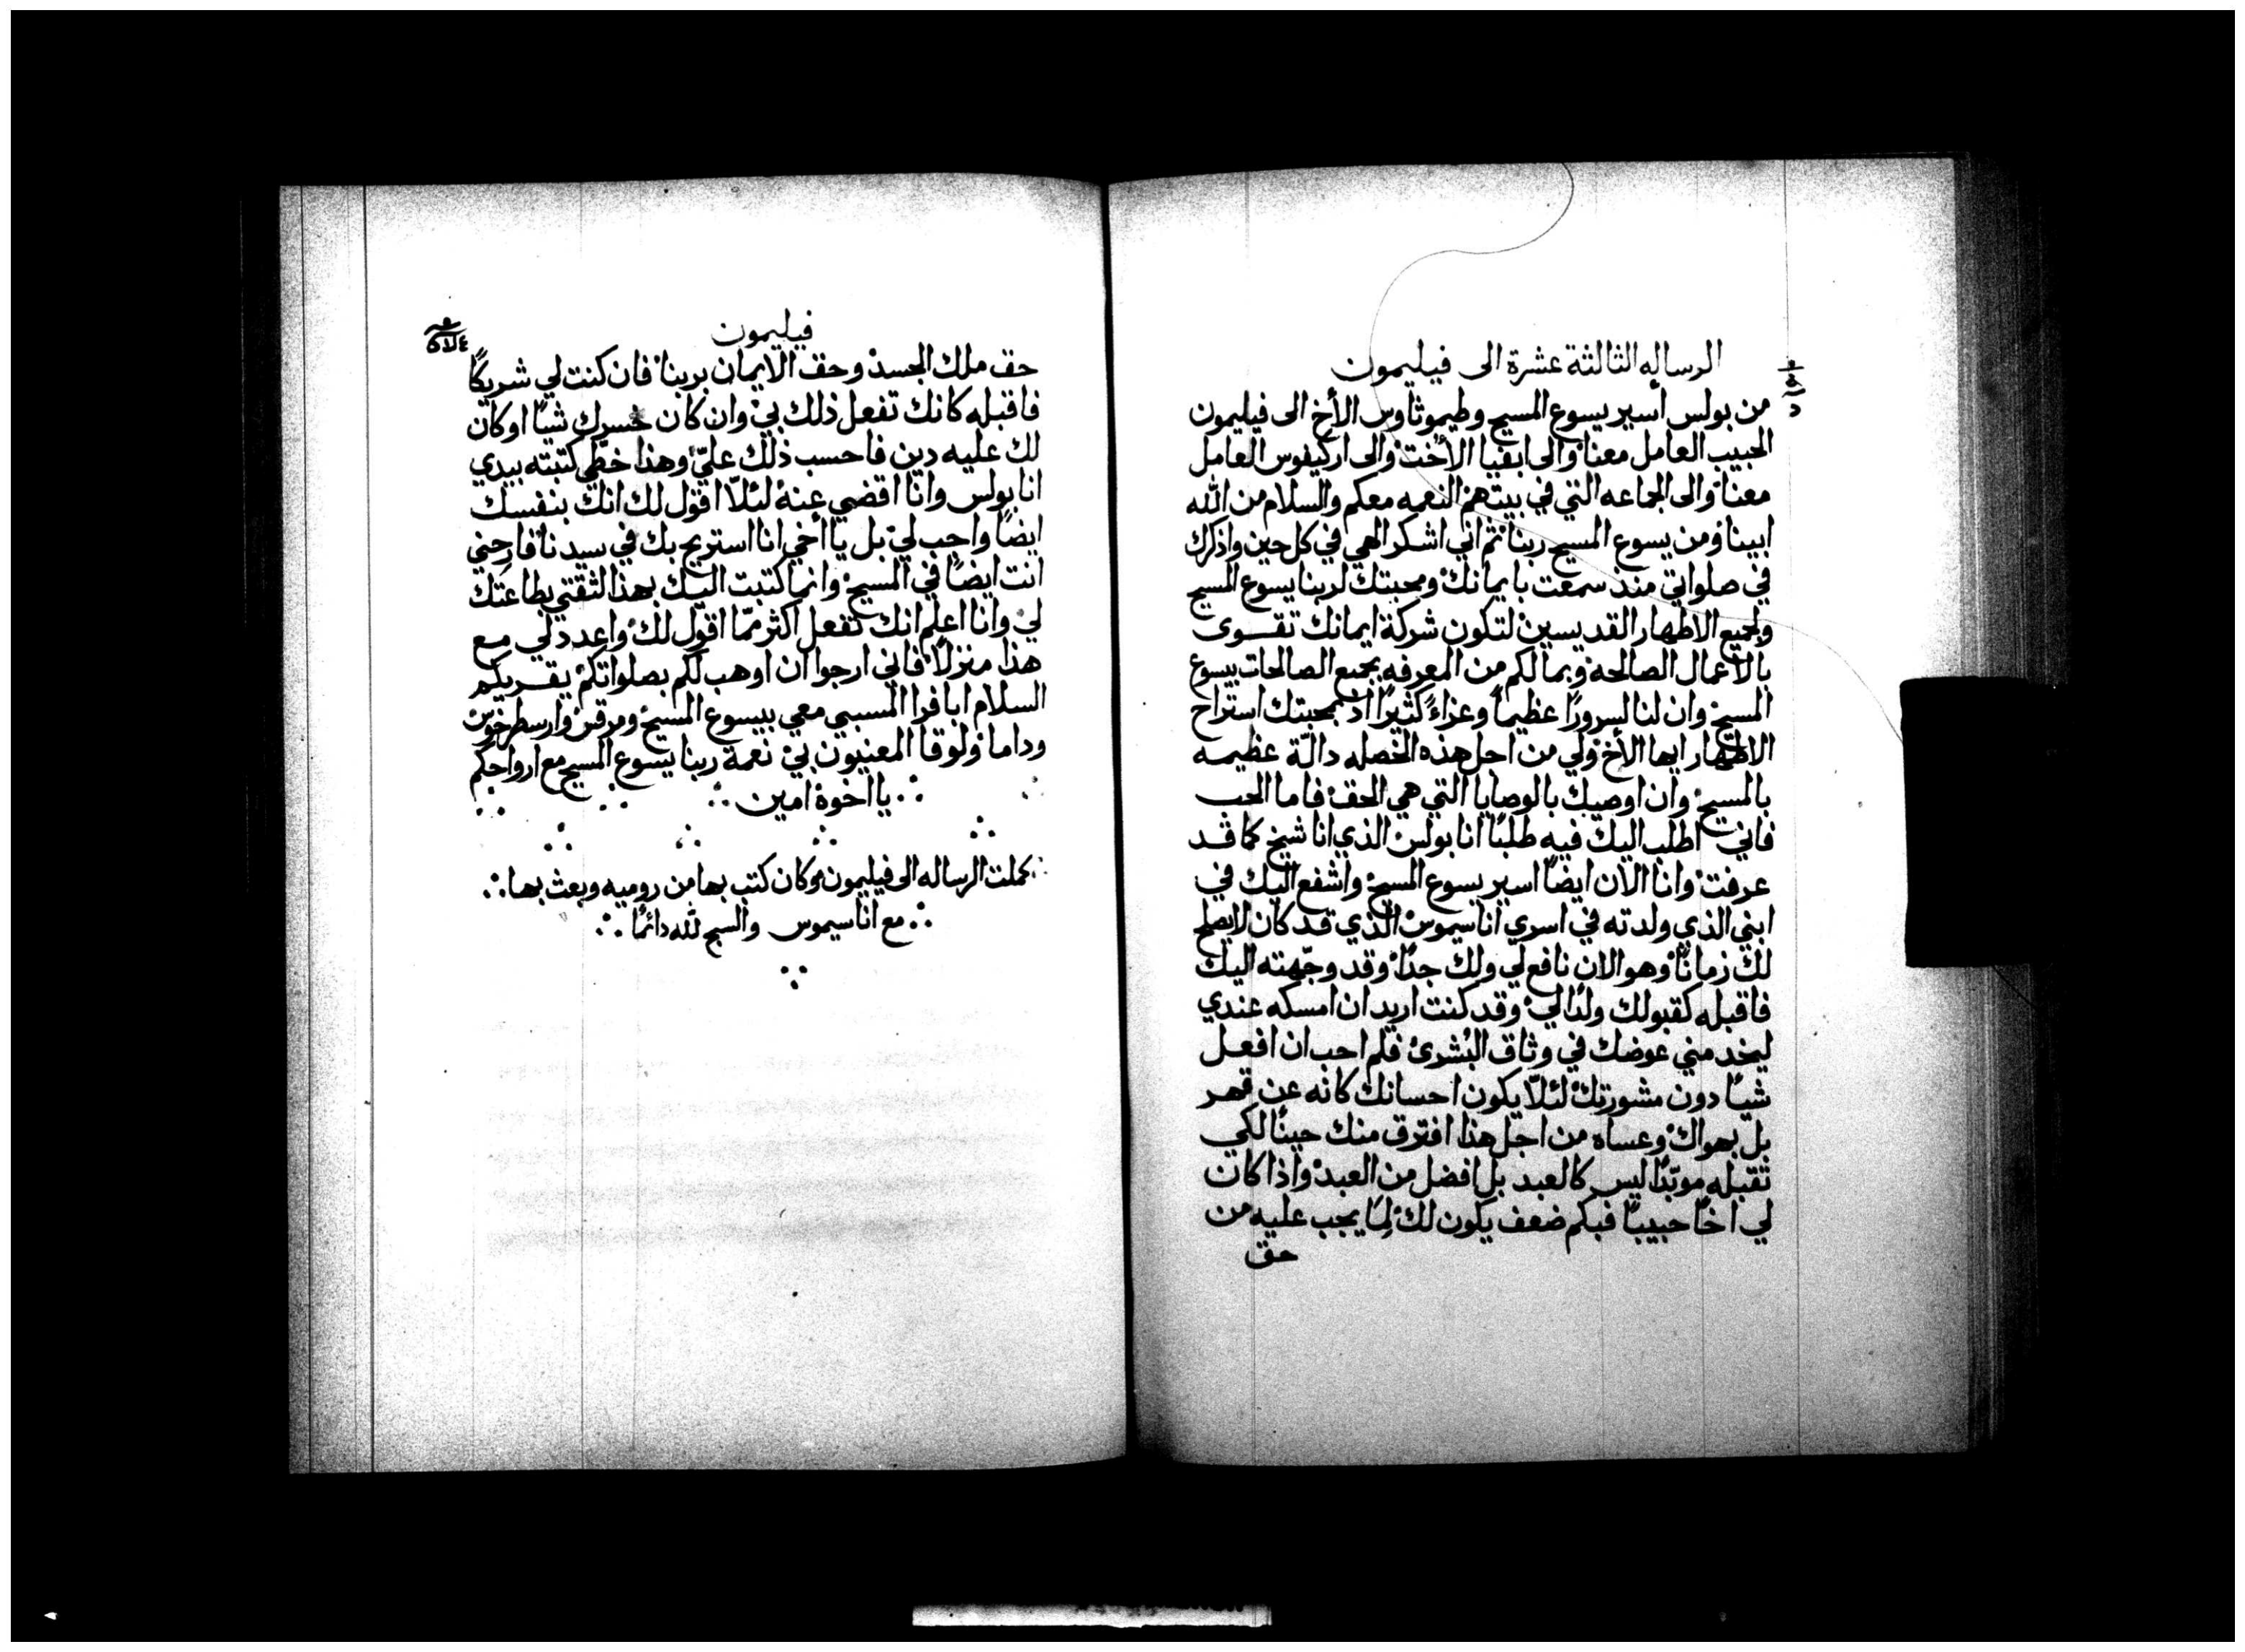 الرساله الثالثة عشرة الى فيليمون
من بولس أسير يسوع المسيح وطيموثاوس الأخ الى فيليمون
الحبيب العامل معنا والى ابفيا الأخت والى اركيفوس العامل
معنا والى الجماعه التي في بيتهم النعمه معكم والسلام من الله
ابينا ومن يسوع المسيح ربنا ثم اني اشكر الهي في كل حين واذكرك
في صلواتي منذ سمعت بايمانك ومحبتك لربنا يسوع المسيح
ولجميع الاطهار القديسين لتكون شركة ايمانك تقوى
بالاعمال الصالحة وبمالكم من المعرفه بجميع الصالحات بيسوع
المسيح وان لنا لسرورًا عظيمًا وعزاءً كثيرًا اذ بمحبتك استراح
الاطهار ايها الأخ ولي من اجل هذه الخصله دالّة عظيمه
بالمسيح وان اوصيك بالوصايا التي هي الحق فاما الحب
فاني اطلب اليك فيه طلبًا انا بولس الذي انا شيخ كما قد
عرفت وانا الان ايضًا اسير يسوع المسيح واشفع اليك في
ابني الذي ولدته في اسري اناسيموس الذي قد كان لا يصلح
لك زمانًا وهو الان نافع لي ولك جدًا وقد وجّهته اليك
فاقبله كقبولك ولدًا لي وقد كنت اريد ان امسكه عندي
ليخدمني عوضك في وثاق البُشرى فلم احب ان افعل
شيًا دون مشورتك لئلّا يكون احسانك كانه عن قهر
بل بهواك وعساه من اجل هذا افترق منك حينًا لكي
تقبله موبّدًا ليس كالعبد بل افضل من العبد واذا كان
لي اخًا حبيبًا فبكم ضعف يكون لك لِمَا يجب عليه من
حق
فيليمون
حق ملك الجسد وحق الايمان بربنا فان كنت لي شريكًا
فاقبله كانك تفعل ذلك بي وان كان خسرك شيًا او كان
لك عليه دين فاحسب ذلك عليّ وهذا خطي كتبته بيدي
انا بولس وانا اقضي عنه لئلّا اقول لك انك بنفسك
ايضًا واجب لي بل يا أخي انا استريح بك في سيدنا فارحني
انت ايضًا في المسيح وانما كتبت اليك بهذا لثقتي بطاعتك
لي وانا اعلم انك تفعل اكثر ممّا اقول لك واعدد لي مع
هذا منزلًا فاني ارجوا ان اوهب لكم بصلواتكم يقريكم
السلام ابافرا المسبي معي بيسوع المسيح ومرقس وارسطرخوس
وداما ولوقا المعنيون بي نعمة ربنا يسوع المسيح مع ارواحكم
يا اخوة امين
كملت الرساله الى فيليمون وكان كتب بها من روميه وبعث بها
مع اناسيموس والسبح لله دائمًا